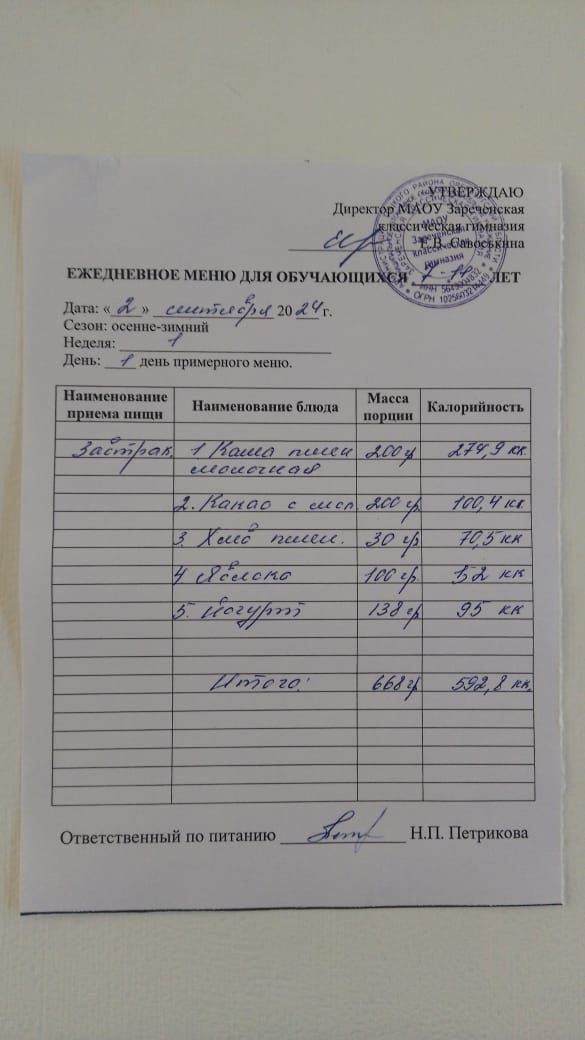 УТВЕРЖДАЮ
Директор МАОУ Зареченская
классическая гимназия
Г.В. Савоськина
ЕЖЕДНЕВНОЕ МЕНЮ ДЛЯ ОБУЧАЮЩИХСЯ ЛЕТ
Дата: « 2 » сентября 20 24 г.
Сезон: осенне-зимний
Неделя: 1
День: 1 день примерного меню.
Наименование приема пищи Наименование блюда Масса порции Калорийность
Завтрак. 1 Каша пшен молочная 200 гр 274,9 кк
2. Какао с мол. 200 гр 100,4 кк
3. Хлеб пшен. 30 гр 70,5 кк
4 Яблоко 100 гр 52 кк
5. Йогурт 138 гр 95 кк
Итого: 668 гр 592,8 кк.
Ответственный по питанию Н.П. Петрикова
МАОУ
Зареченская
классическая
гимназия